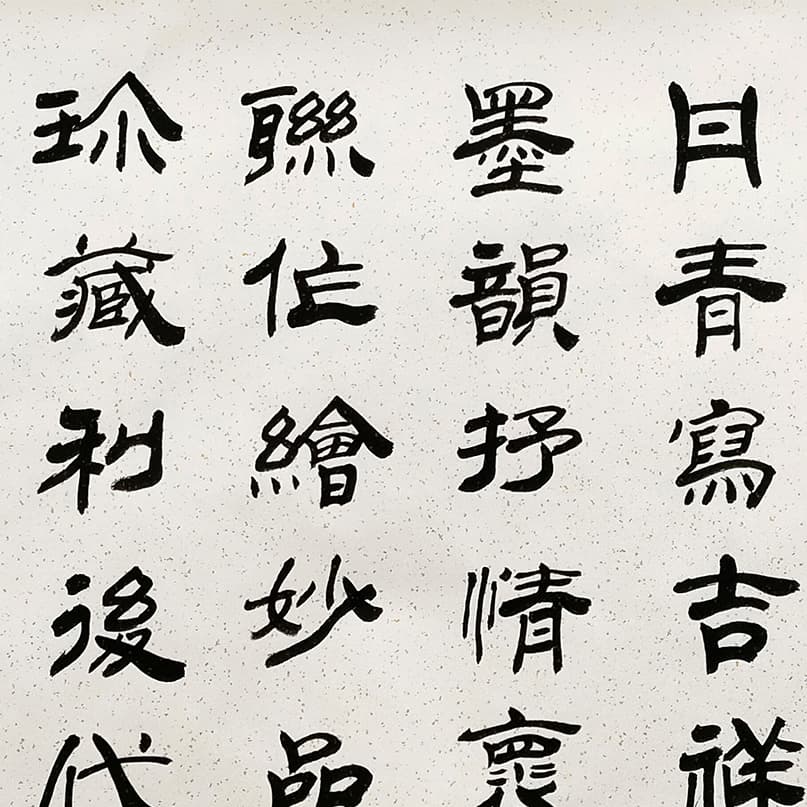 丹青寫吉祥
墨韻抒情褱
聯作繪妙品
珍藏利後代